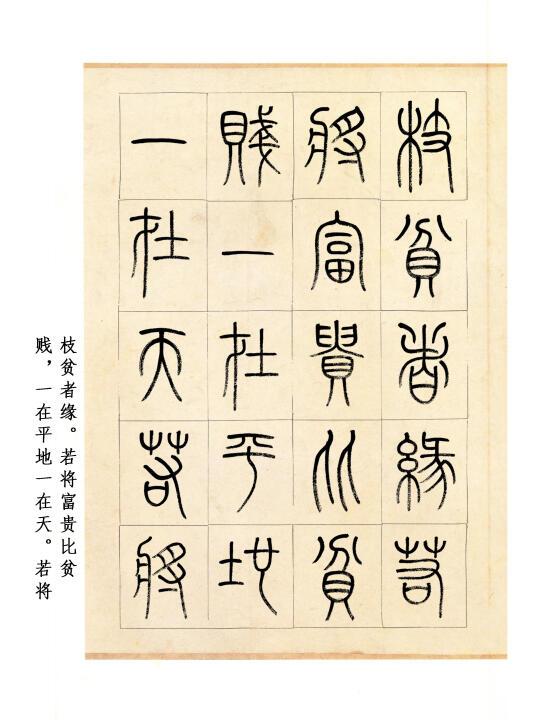 枝貧者緣若
將富貴比貧
賤一在平地
一在天若將
枝贫者缘。若将富贵比贫
贱，一在平地一在天。若将